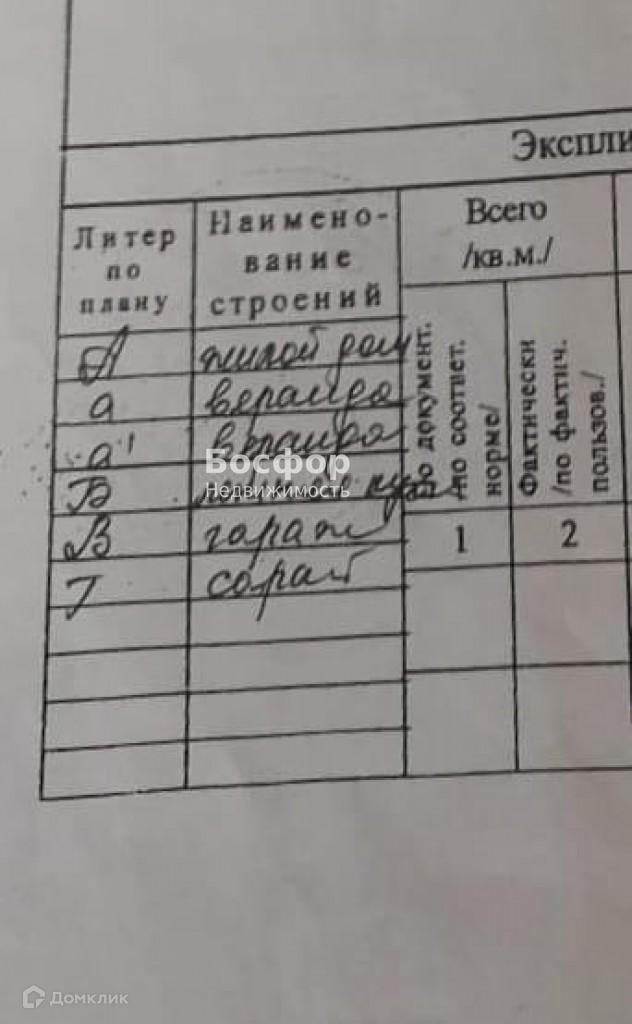 Экспли
Литер
по
плану
Наимено-
вание
строений
Всего
/кв.м./
по документ.
/по соответ.
норме/
Фактически
/по фактич.
пользов./
А жилой дом
а веранда
а' веранда
Б
В гараж
Г сарай
1 2
Босфор
Недвижимость
Домклик